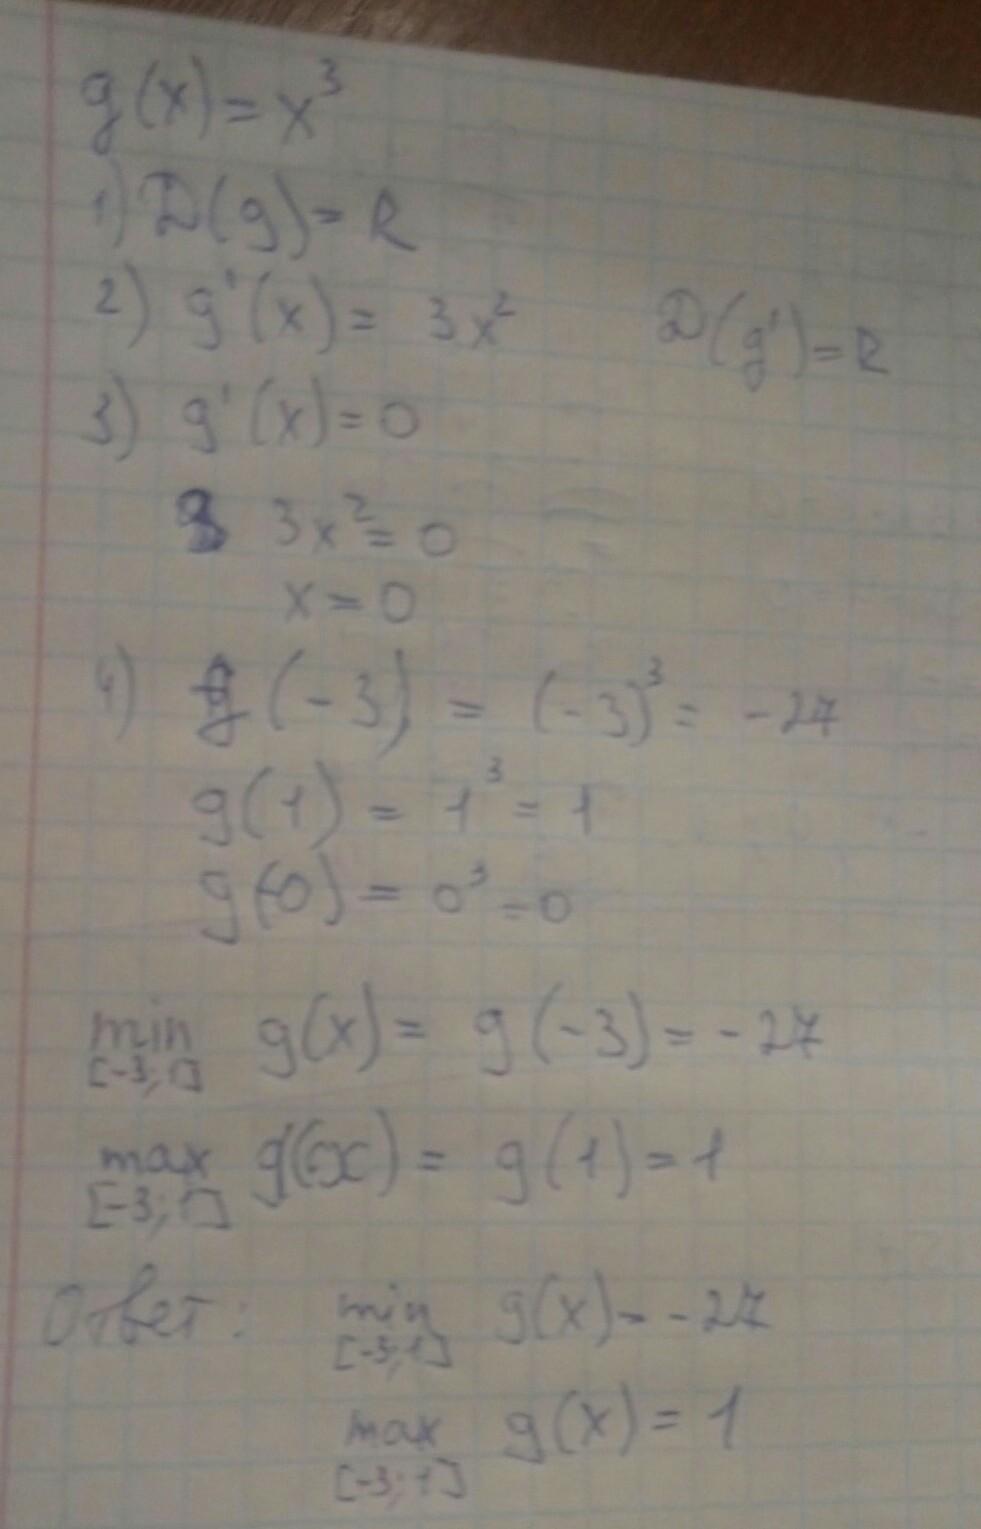 g(x) = x³
1) D(g) = R
2) g'(x) = 3x² D(g') = R
3) g'(x) = 0
3x² = 0
x = 0
4) g(-3) = (-3)³ = -27
g(1) = 1³ = 1
g(0) = 0³ = 0
min g(x) = g(-3) = -27
[-3; 1]
max g(x) = g(1) = 1
[-3; 1]
Ответ: min g(x) = -27
[-3; 1]
max g(x) = 1
[-3; 1]